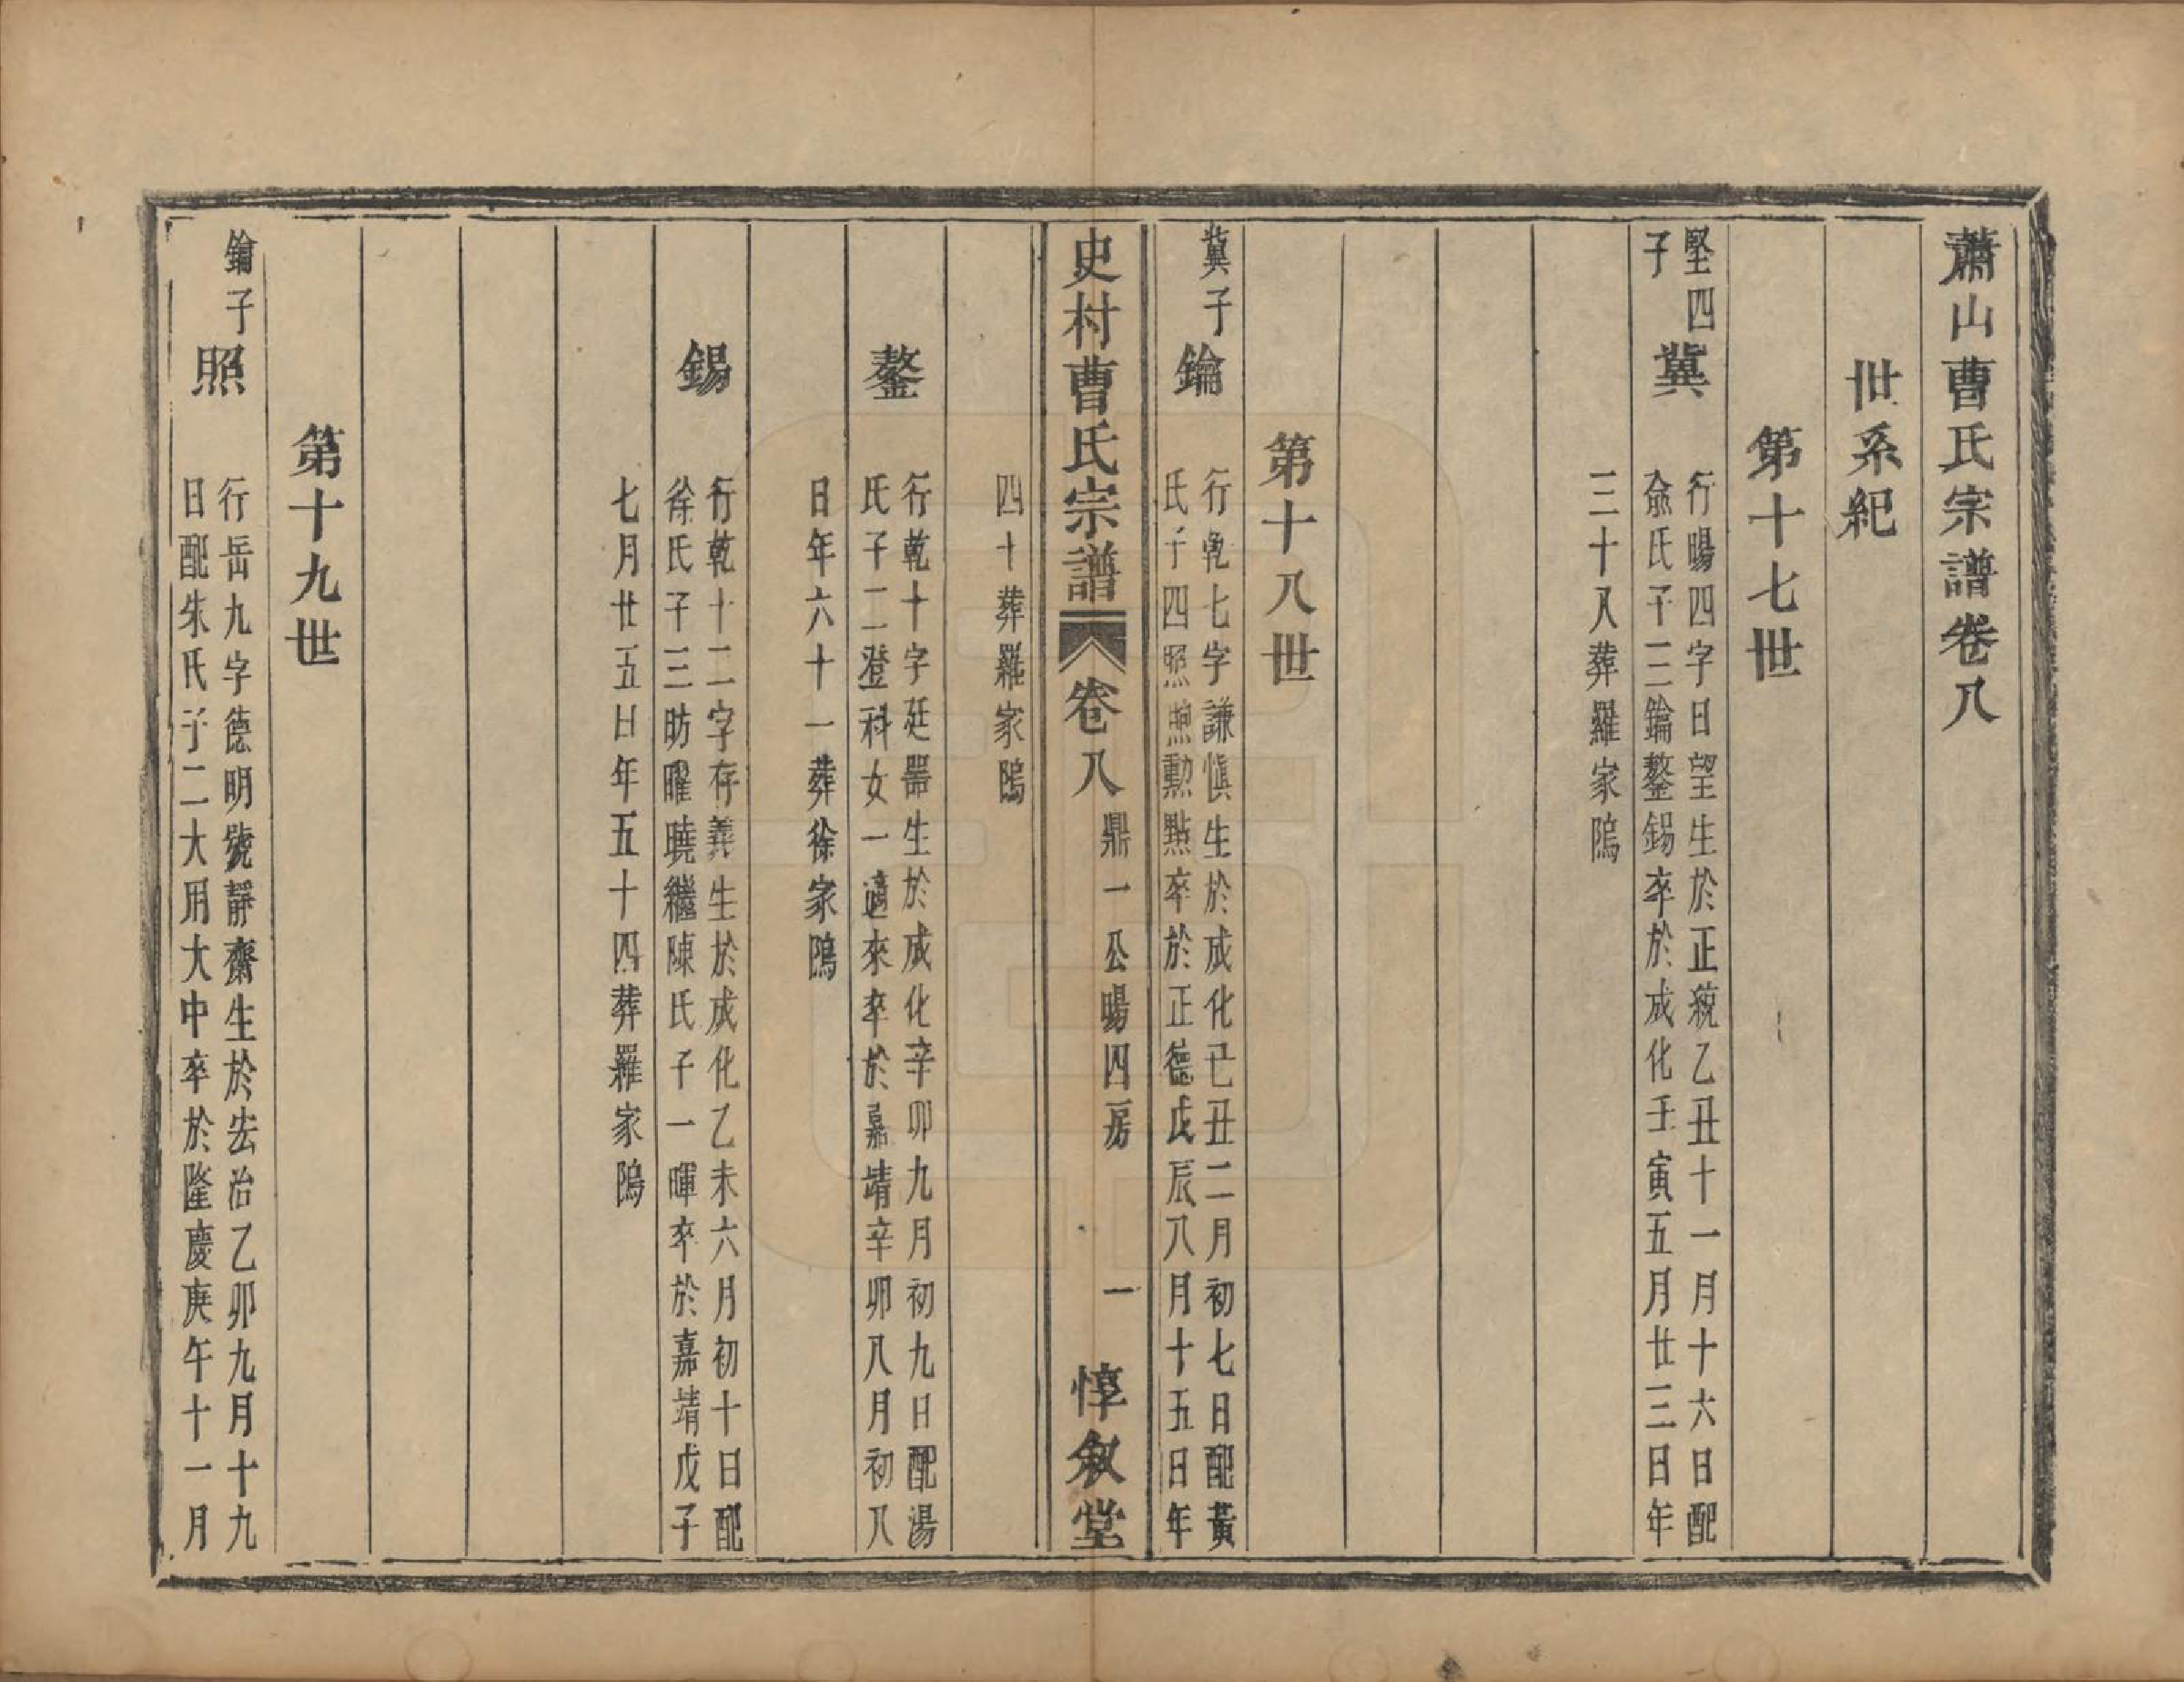 蕭山曹氏宗譜卷八
世系紀
第十七世
堅四
子
冀
行暘四字日望生於正統乙丑十一月十六日配
兪氏子三鑰鏊錫卒於成化壬寅五月廿三日年
三十八葬羅家隖
第十八世
冀子
鑰
行乾七字謙愼生於成化己丑二月初七日配黃
氏子四照煦勲㸃卒於正德戊辰八月十五日年
史村曹氏宗譜
卷八
鼎一公暘四房
一
惇叙堂
四十葬羅家隖
鏊
行乾十字廷器生於成化辛卯九月初九日配湯
氏子二登科女一適來卒於嘉靖辛卯八月初八
日年六十一葬徐家隖
錫
行乾十二字存義生於成化乙未六月初十日配
徐氏子三昉曜曉繼陳氏子一暉卒於嘉靖戊子
七月廿五日年五十四葬羅家隖
第十九世
鑰子
照
行岳九字德明號靜齋生於宏治乙卯九月十九
日配朱氏子二大用大中卒於隆慶庚午十一月